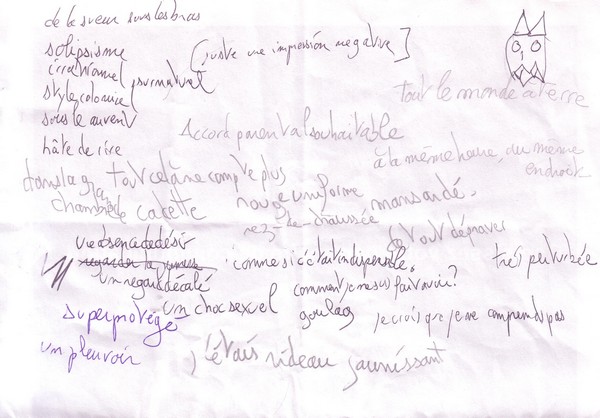 de la sueur sous les bras
solipsisme
(juste une impression negative]
irrationnel
surnaturel
style colonial
sous le auvent
tout le monde à terre
Accord parental souhaitable
hâte de rire
à la même heure, au même
endroit
dans la
tout cela ne compte plus
chambre cadette
rouge uniforme
mansardé.
rez-de-chaussée
tout dépraver
une absence de désir
regarder la
comme si c'était indispensable.
très perturbée
un regard décalé
comment je me suis fait avoir?
un choc sexuel
goulag
je crois que je ne comprends pas
superprotégé
un pleuvoir
j'étais rideau jaunissant